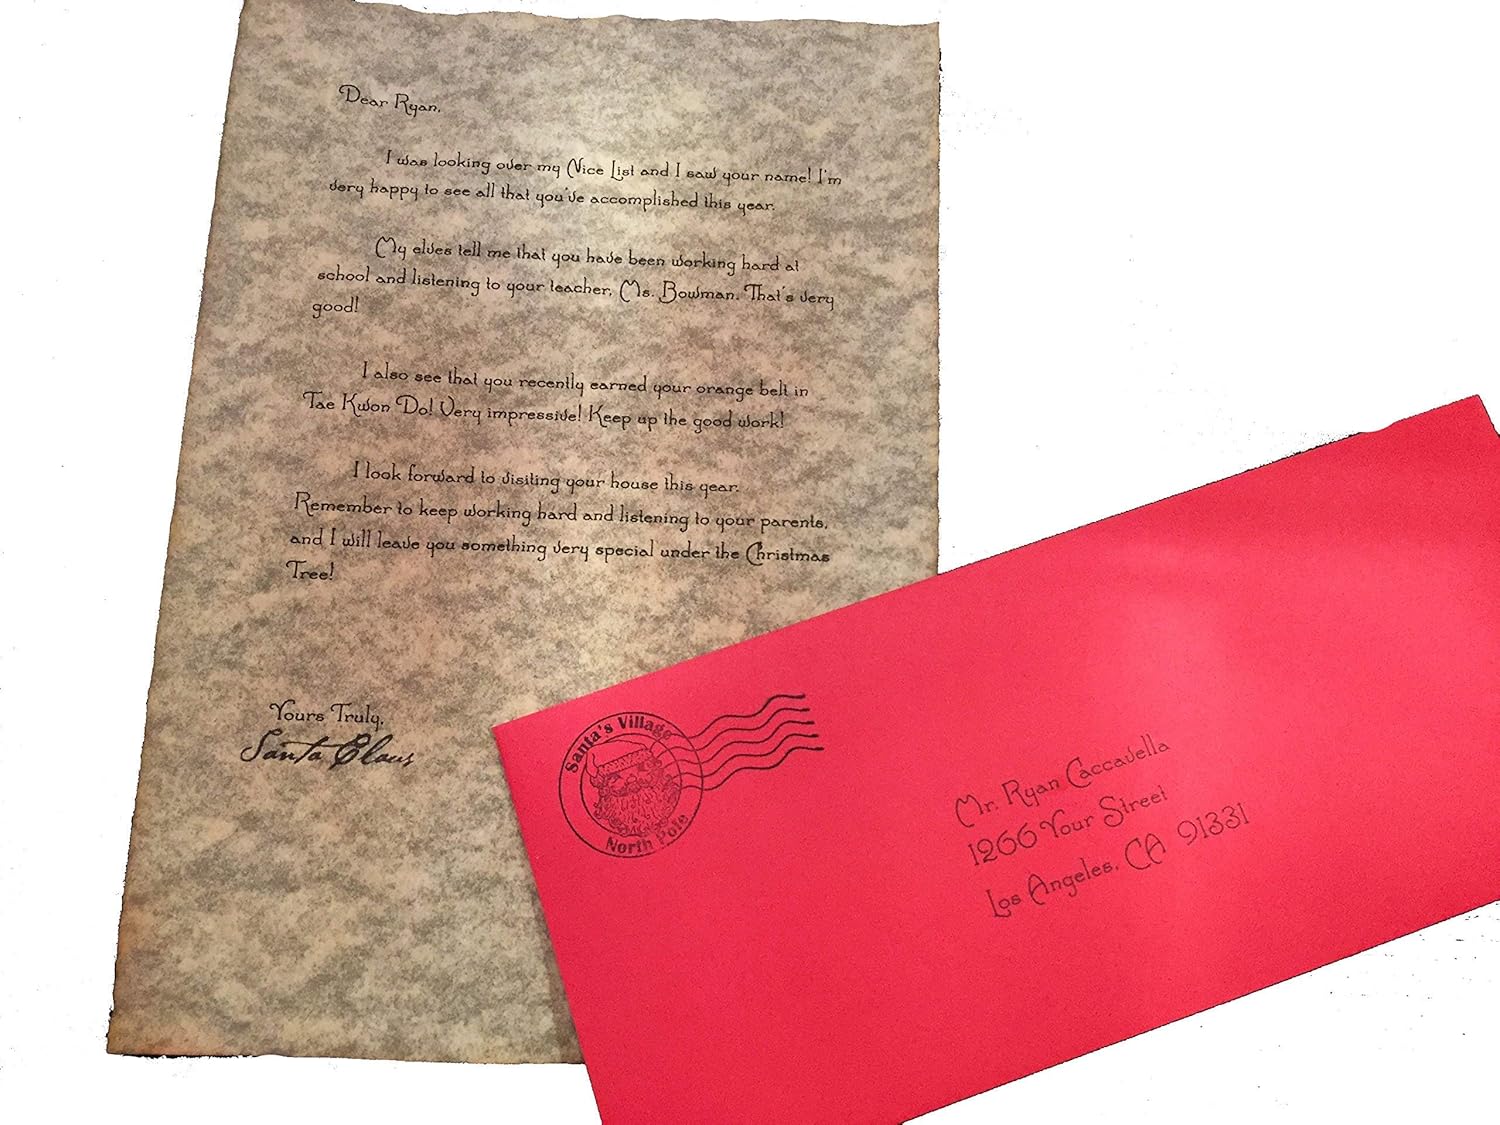 Dear Ryan,
I was looking over my Nice List and I saw your name! I'm
very happy to see all that you've accomplished this year.
My elves tell me that you have been working hard at
school and listening to your teacher, Ms. Bowman. That's very
good!
I also see that you recently earned your orange belt in
Tae Kwon Do! Very impressive! Keep up the good work!
I look forward to visiting your house this year.
Remember to keep working hard and listening to your parents,
and I will leave you something very special under the Christmas
Tree!
Yours Truly,
Santa Claus
Santa's Village
North Pole
Mr. Ryan Caccavella
1266 Your Street
Los Angeles, CA 91331